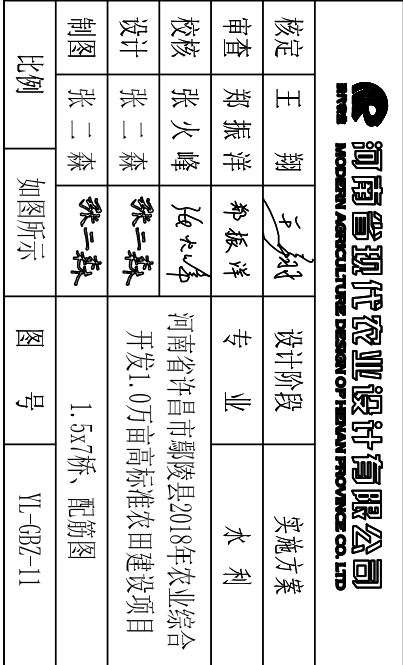 河南省现代农业设计有限公司
MODERN AGRICULTURE DESIGN OF HENAN PROVINCE CO. LTD
核定 王翔 王翔 设计阶段 实施方案
审查 郑振洋 郑振洋 专业 水利
校核 张火峰 张火峰
设计 张二森 张二森
制图 张二森 张二森
河南省许昌市鄢陵县2018年农业综合
开发1.0万亩高标准农田建设项目
1.5x7桥、配筋图
比例 如图所示 图号 YL-GBZ-11